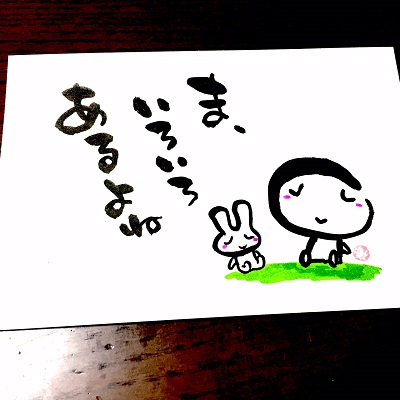 ま、
いろいろ
あるよね